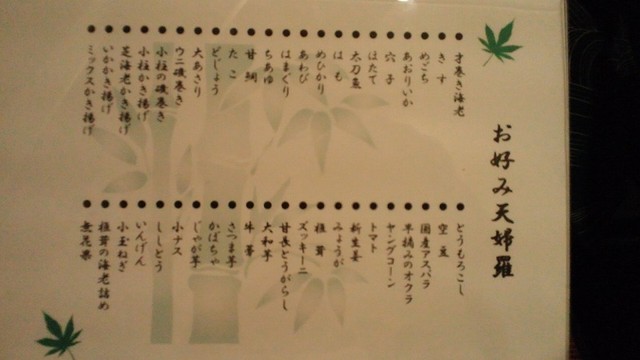 お好み天婦羅
才巻き海老
きす
めごち
あおりいか
穴子
ほたて
太刀魚
はも
めひかり
あわび
はまぐり
ちあゆ
甘鯛
たこ
どじょう
大あさり
ウニ磯巻き
小柱の磯巻き
小柱かき揚げ
芝海老かき揚げ
いかかき揚げ
ミックスかき揚げ
とうもろこし
空豆
国産アスパラ
早摘みのオクラ
ヤングコーン
トマト
新生姜
みょうが
椎茸
ズッキーニ
甘長とうがらし
大和芋
牛蒡
さつま芋
かぼちゃ
じゃが芋
小ナス
ししとう
いんげん
小玉ねぎ
椎茸の海老詰め
無花果